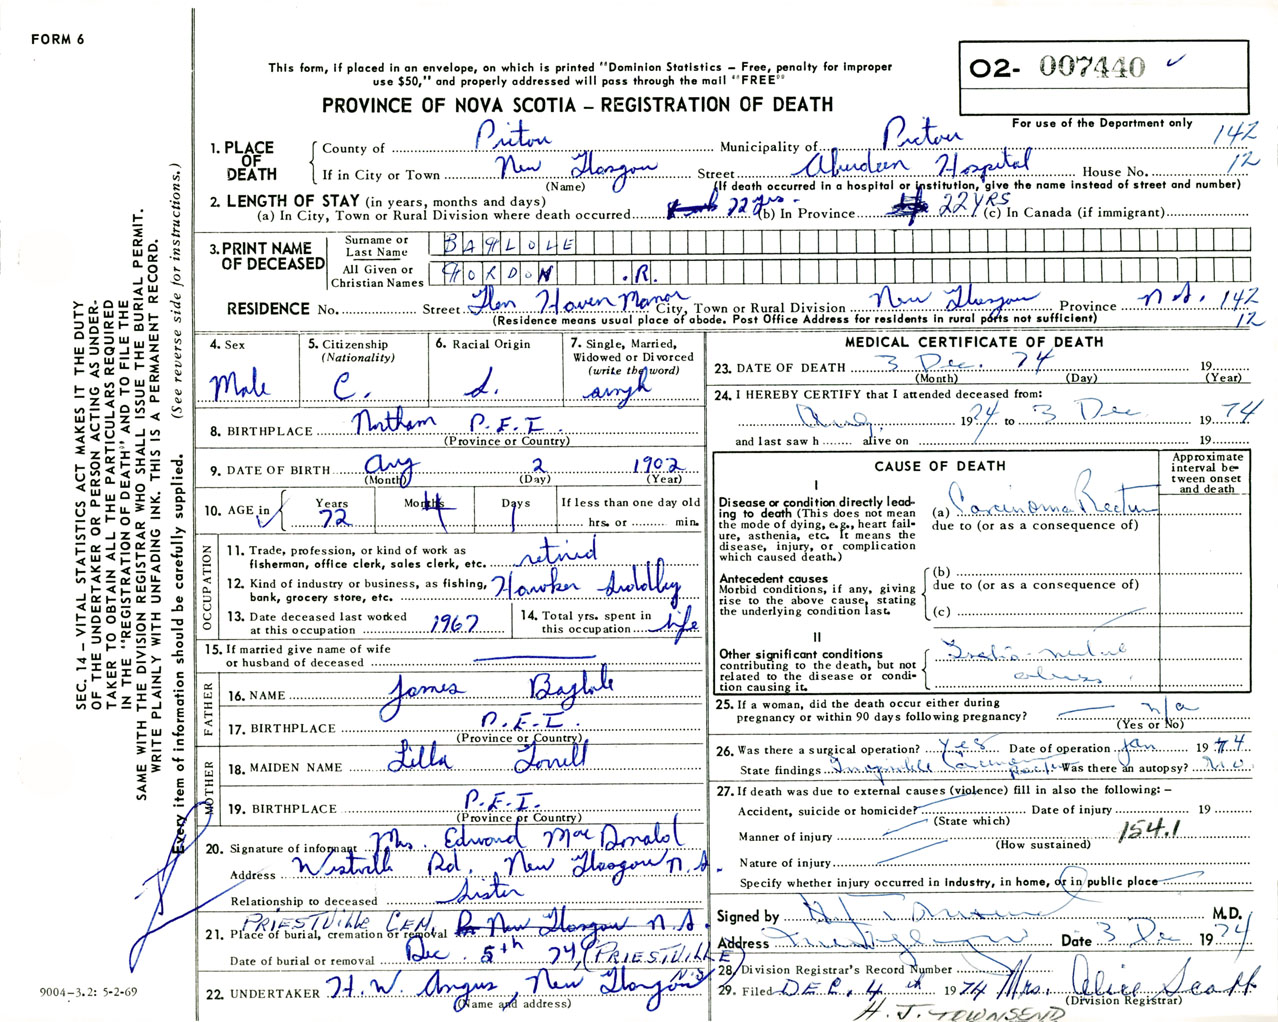 FORM 6
This form, if placed in an envelope, on which is printed "Dominion Statistics — Free, penalty for improper
use $50," and properly addressed will pass through the mail "FREE"
O2- 007440
PROVINCE OF NOVA SCOTIA — REGISTRATION OF DEATH
For use of the Department only
1. PLACE OF DEATH
County of Pictou Municipality of Pictou 142
If in City or Town New Glasgow Street Aberdeen Hospital House No. 12
(Name) (If death occurred in a hospital or institution, give the name instead of street and number)
2. LENGTH OF STAY (in years, months and days)
(a) In City, Town or Rural Division where death occurred 22 yrs. (b) In Province 22 YRS (c) In Canada (if immigrant)
3. PRINT NAME OF DECEASED
Surname or Last Name BAGLOLE
All Given or Christian Names GORDON .R.
RESIDENCE No. Street Glen Haven Manor City, Town or Rural Division New Glasgow Province N.S. 142
(Residence means usual place of abode. Post Office Address for residents in rural parts not sufficient) 12
4. Sex Male
5. Citizenship (Nationality) C.
6. Racial Origin
7. Single, Married, Widowed or Divorced (write the word) single
8. BIRTHPLACE Northam P.E.I.
(Province or Country)
9. DATE OF BIRTH Aug 2 1902
(Month) (Day) (Year)
10. AGE in Years 72 Months 4 Days 1 If less than one day old
hrs. or min.
OCCUPATION
11. Trade, profession, or kind of work as
fisherman, office clerk, sales clerk, etc. retired
12. Kind of industry or business, as fishing,
bank, grocery store, etc. Hawker Siddley
13. Date deceased last worked
at this occupation 1967
14. Total yrs. spent in
this occupation life
15. If married give name of wife
or husband of deceased
FATHER
16. NAME James Baglole
17. BIRTHPLACE P.E.I.
(Province or Country)
MOTHER
18. MAIDEN NAME Lilla
19. BIRTHPLACE P.E.I.
(Province or Country)
20. Signature of informant Mrs. Edward MacDonald
Address Westville Rd. New Glasgow N.S.
Relationship to deceased Sister
21. Place of burial, cremation or removal PRIESTVILLE CEM. New Glasgow N.S.
Date of burial or removal Dec 5th 74 (PRIESTVILLE N.S.)
22. UNDERTAKER H.W. Angus, New Glasgow
(Name and address)
MEDICAL CERTIFICATE OF DEATH
23. DATE OF DEATH 3 Dec. 74 19
(Month) (Day) (Year)
24. I HEREBY CERTIFY that I attended deceased from:
Aug. 1974 to 3 Dec 1974
and last saw h alive on 19
CAUSE OF DEATH
Approximate interval between onset and death
I
Disease or condition directly leading to death (This does not mean the mode of dying, e.g., heart failure, asthenia, etc. It means the disease, injury, or complication which caused death.)
(a) Carcinoma Rectum
due to (or as a consequence of)
Antecedent causes
Morbid conditions, if any, giving rise to the above cause, stating the underlying condition last.
(b)
due to (or as a consequence of)
(c)
II
Other significant conditions contributing to the death, but not related to the disease or condition causing it.
ulcer
25. If a woman, did the death occur either during
pregnancy or within 90 days following pregnancy? n/a
(Yes or No)
26. Was there a surgical operation? yes Date of operation Jan 1974
State findings Inoperable Carcinoma Rectum Was there an autopsy? no
27. If death was due to external causes (violence) fill in also the following: —
Accident, suicide or homicide? Date of injury 19
(State which)
Manner of injury 154.1
(How sustained)
Nature of injury
Specify whether injury occurred in industry, in home, or in public place
Signed by M.D.
Address New Glasgow Date 3 Dec 1974
28. Division Registrar's Record Number
29. Filed DEC. 4th 1974 Mrs. Alice Scott
(Division Registrar)
H. J. TOWNSEND
SEC. 14 — VITAL STATISTICS ACT MAKES IT THE DUTY
OF THE UNDERTAKER OR PERSON ACTING AS UNDER-
TAKER TO OBTAIN ALL THE PARTICULARS REQUIRED
IN THE "REGISTRATION OF DEATH" AND TO FILE THE
SAME WITH THE DIVISION REGISTRAR WHO SHALL ISSUE THE BURIAL PERMIT.
WRITE PLAINLY WITH UNFADING INK. THIS IS A PERMANENT RECORD.
Every item of information should be carefully supplied. (See reverse side for instructions.)
9004-3.2: 5-2-69